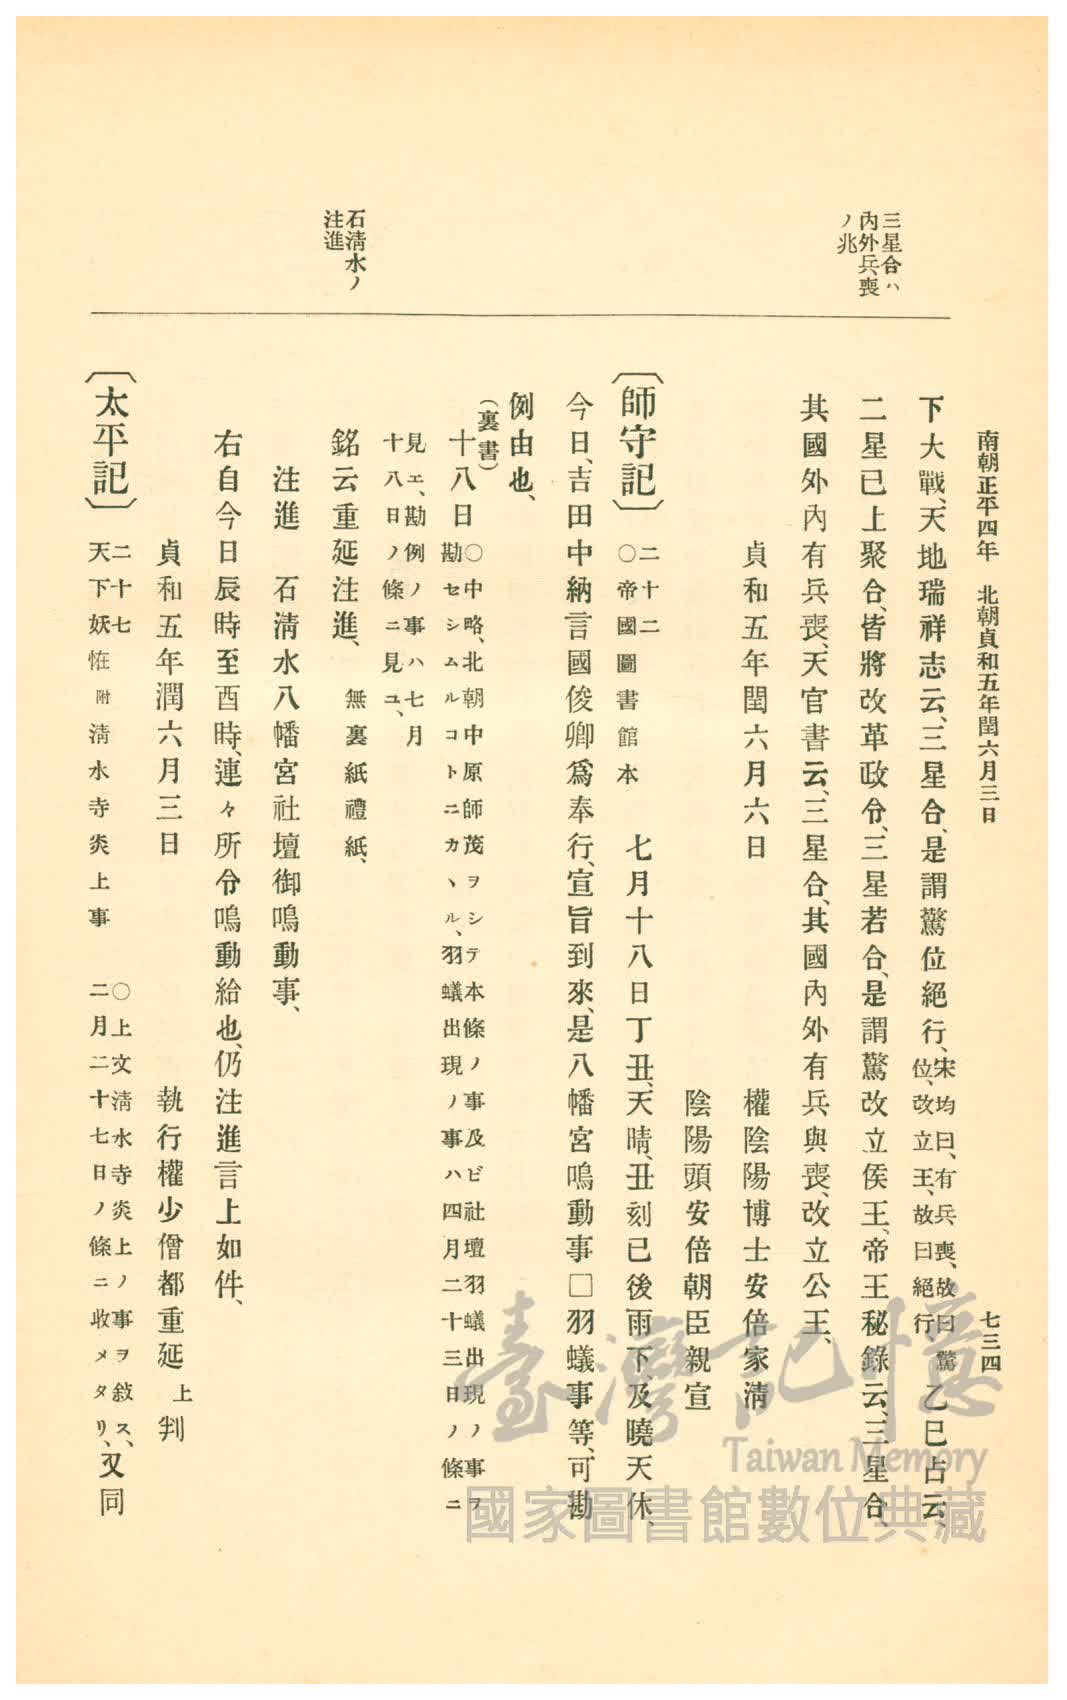 南朝正平四年　北朝貞和五年閏六月三日
七三四
三星合ハ
內外兵喪
ノ兆
石淸水ノ
注進
下大戰、天地瑞祥志云、三星合、是謂驚位絕行、宋均曰、有兵喪、故曰驚位、改立王、故曰絕行乙巳占云、
二星已上聚合、皆將改革政令、三星若合、是謂驚改立侯王、帝王秘錄云、三星合、
其國外內有兵喪、天官書云、三星合、其國內外有兵與喪、改立公王、
貞和五年閏六月六日　權陰陽博士安倍家淸
陰陽頭安倍朝臣親宣
〔師守記〕二十二〇帝國圖書館本　七月十八日丁丑、天晴、丑刻已後雨下、及曉天休、
今日、吉田中納言國俊卿爲奉行、宣旨到來、是八幡宮鳴動事□羽蟻事等、可勘
例由也、
（裏書）
十八日〇中略、北朝中原師茂ヲシテ本條ノ事及ビ社壇羽蟻出現ノ事ヲ
勘セシムルコトニカヽル、羽蟻出現ノ事ハ四月二十三日ノ條ニ
見エ、勘例ノ事ハ七月
十八日ノ條ニ見ユ、
銘云重延注進、無裏紙禮紙、
注進　石淸水八幡宮社壇御鳴動事、
右自今日辰時至酉時、連々所令鳴動給也、仍注進言上如件、
貞和五年潤六月三日　執行權少僧都重延上判
〔太平記〕二十七　天下妖恠附淸水寺炎上事　〇上文淸水寺炎上ノ事ヲ敍ス、二月二十七日ノ條ニ收メタリ、又同
臺灣記憶
Taiwan Memory
國家圖書館數位典藏